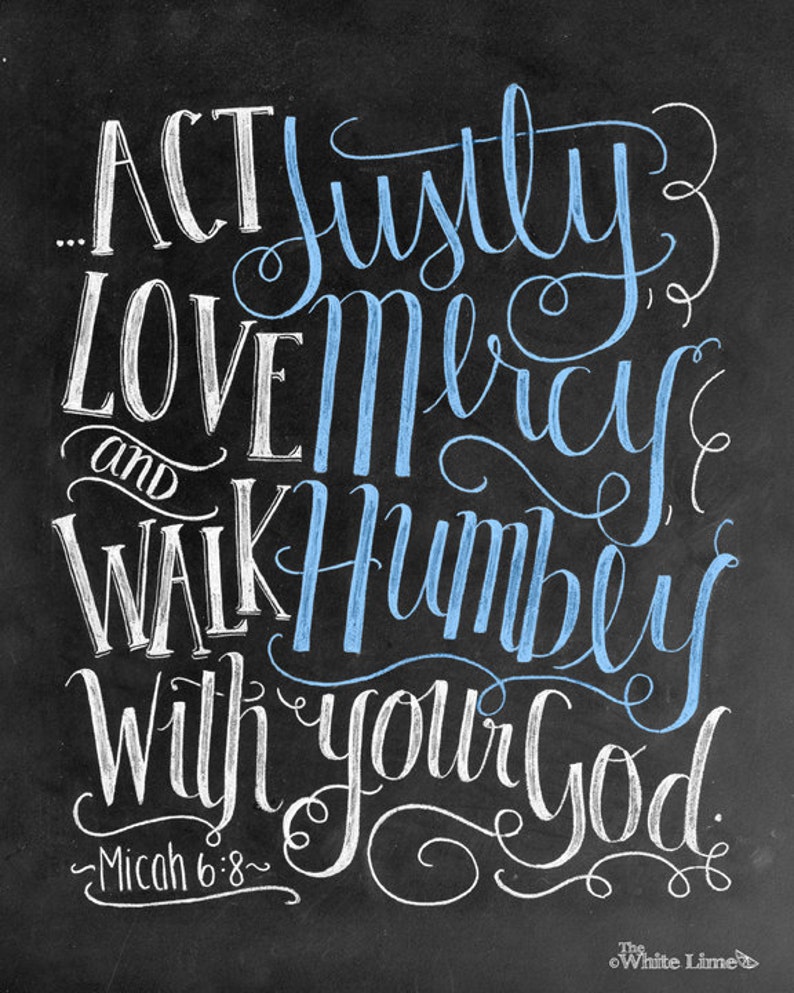 ...ACT Justly
LOVE Mercy
and
WALK Humbly
With your God.
~Micah 6:8~
The
©White Lime